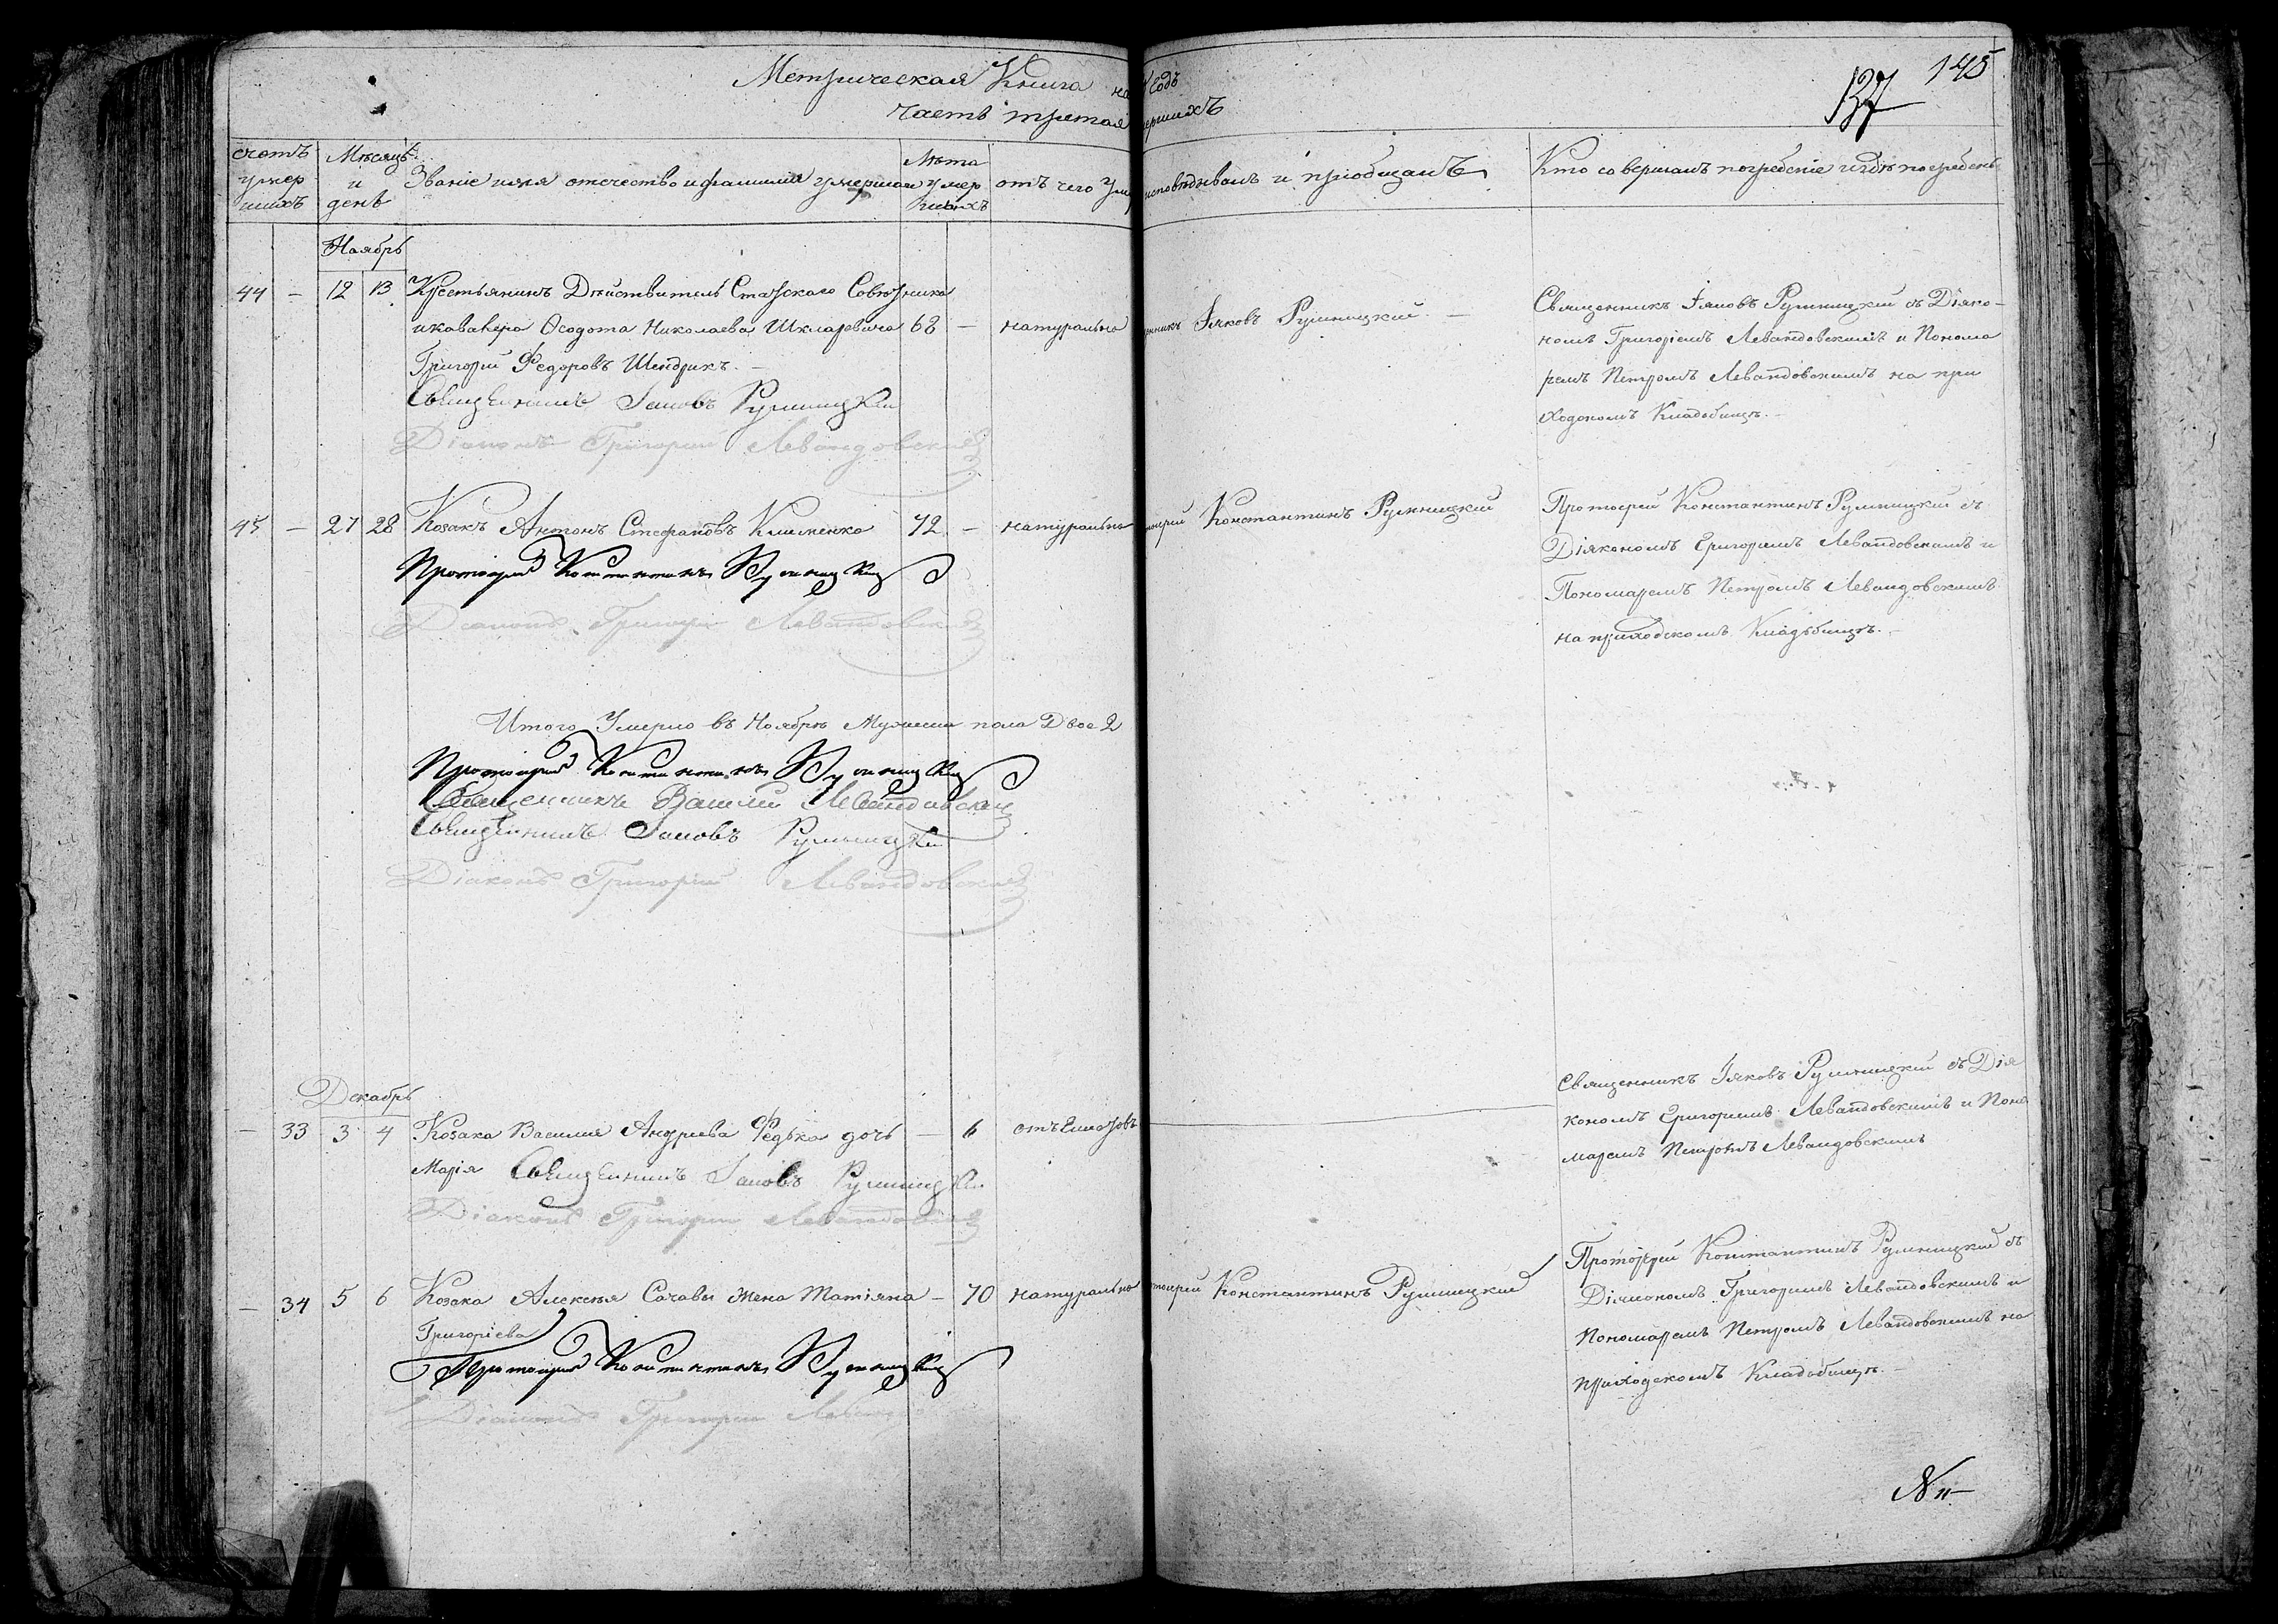 Метрическая Книга на Годъ
137 145
часть третая ершихъ
счетъ умер шихъ
Мѣсяцъ и день
Званіе имя отечество и фамилия умершаго
Лѣта умер шихъ
отъ чего Уме
исповѣдывалъ и приобщалъ
Кто совершалъ погребеніе и гдѣ погребены
Ноябрь
44 – 12 13 Крестьянинъ Дѣйствитель Статскаго Совѣтника
и кавалера Осодота Николаева Шкляревича 68 – натурально
Григорій Федоровъ Шендрикъ. –
Священникъ Іаковъ Румницкій
Діаконъ Григорій Левандовскій
енникъ Іяковъ Румницкій. –
Священникъ Іяковъ Румницкій съ Діяко-
номъ Григоріемъ Левандовскимъ и Понома
ремъ Петромъ Левандовскимъ на при
ходскомъ Кладбищѣ. –
45 – 27 28 Козакъ Антонъ Стефановъ Клименко 72. – натурально
Протоіерей Константинъ Румницкій
Діаконъ Григорій Левандовскій
тоіерей Константинъ Румницкій
Протоерей Константинъ Румницкій съ
Діякономъ Григоріемъ Левандовскимъ и
Пономаремъ Петромъ Левандовскимъ
на приходскомъ Кладбищѣ. –
Итого Умерло въ Ноябрѣ Мужеска пола Двое 2
Протоіерей Константинъ Румницкій
Священникъ Василій Левандовскій
Священникъ Іаковъ Румницкій
Діаконъ Григорій Левандовскій
Декабрь
– 33 3 4 Козака Василия Андреева Федька дочь – 6 отъ
Марія Священникъ Іаковъ Румницкій
Діаконъ Григорій Левандовскій
Священникъ Іяковъ Румницкій съ Дія
кономъ Григоріемъ Левандовскимъ и Поно
маремъ Петромъ Левандовскимъ
– 34 5 6 Козака Алексѣя Сачавы жена Татіяна – 70 натурально
Григоріева
Протоіерей Константинъ Румницкій
Діаконъ Григорій
тоіерей Константинъ Румницкій
Протоіерей Константинъ Румницкій съ
Діякономъ Григоріемъ Левандовскимъ и
Пономаремъ Петромъ Левандовскимъ на
приходскомъ Кладбищѣ. –